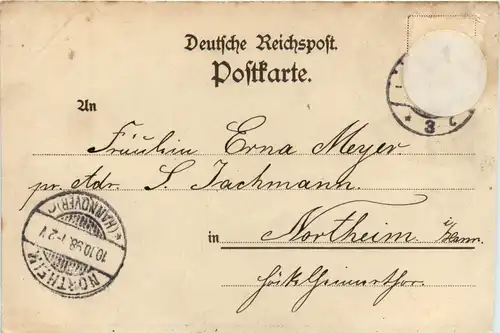 Deutsche Reichspost.
Postkarte.
An
Fräulein Erna Meyer.
pr. Adr. S. Jachmann.
in Northeim i/Hann.
Höckelheimerthor.
NORTHEIM
10.10.98. 1-2 N
*(HANNOVER)C
* 3 2